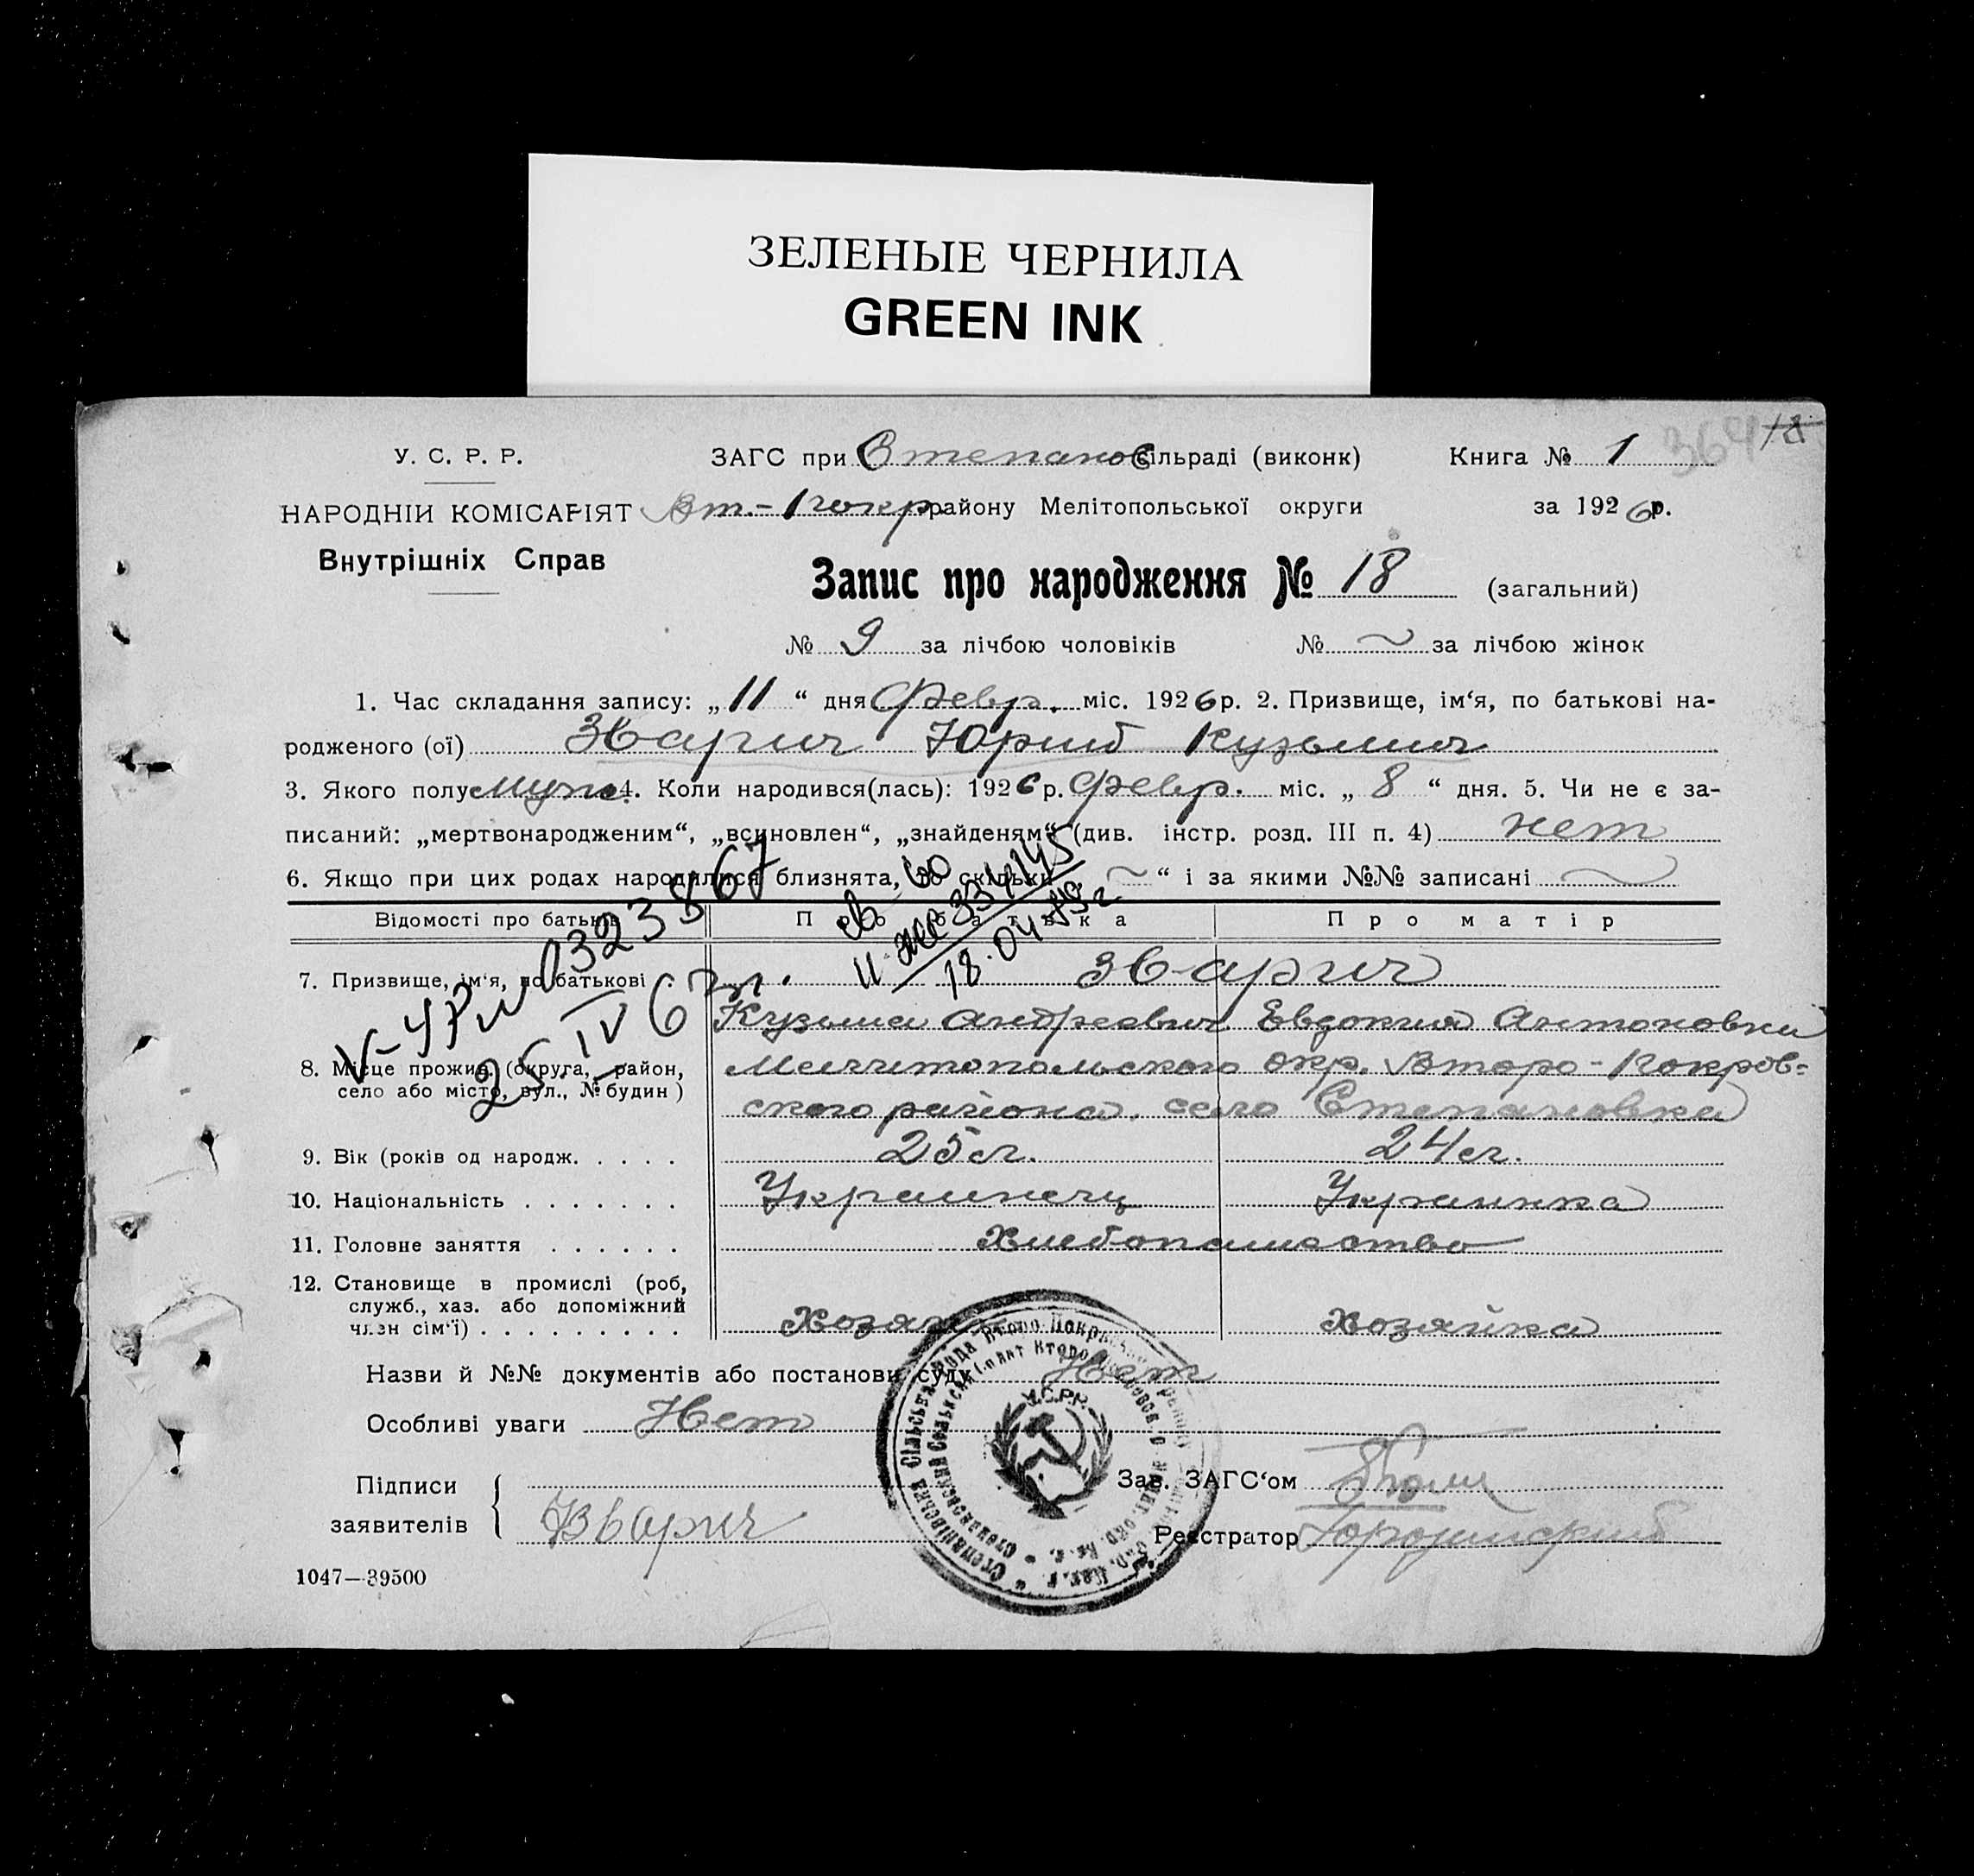 ЗЕЛЕНЫЕ ЧЕРНИЛА
GREEN INK
364 18
У. С. Р. Р. ЗАГС при Степанов сільраді (виконк) Книга № 1
НАРОДНІИ КОМІСАРІЯТ Вт.-Покр. району Мелітопольської округи за 1926 р.
Внутрішніх Справ
Запис про народження № 18 (загальний)
№ 9 за лічбою чоловіків № ~ за лічбою жінок
1. Час складання запису: „11“ дня февр. міс. 1926 р. 2. Призвище, ім‘я, по батькові на-
родженого (ої) Зварич Юрий Кузьмич
3. Якого полу муж. 4. Коли народився(лась): 1926 р. февр. міс. „8“ дня. 5. Чи не є за-
писаний: „мертвонародженим“, „всиновлен“, „знайденям“ (див. інстр. розд. III п. 4) нет
6. Якщо при цих родах народилися близнята, то скільки ~ “ і за якими №№ записані ~
Відомості про батьків Про батька Про матір
7. Призвище, ім‘я, по батькові Зварич
Кузьма Андреевич Евдокия Антоновна
8. Місце прожив. (округа, район, Мелитопольского окр. Второ-Покров-
село або місто, вул., № будин) ского района, село Степановка
9. Вік (років од народж. 25 л. 24 л.
10. Національність Украинец Украинка
11. Головне заняття Хлебопашество
12. Становище в промислі (роб,
служб., хаз. або допоміжний
член сім‘ї) Хозяин Хозяйка
V-УРи 0323867
25 IV 67 г.
334145
18.04
Назви й №№ документів або постанови суду Нет
Особливі уваги Нет
У.С.Р.Р.
Підписи Зав. ЗАГС‘ом
заявителів Зварич Реєстратор
1047—39500